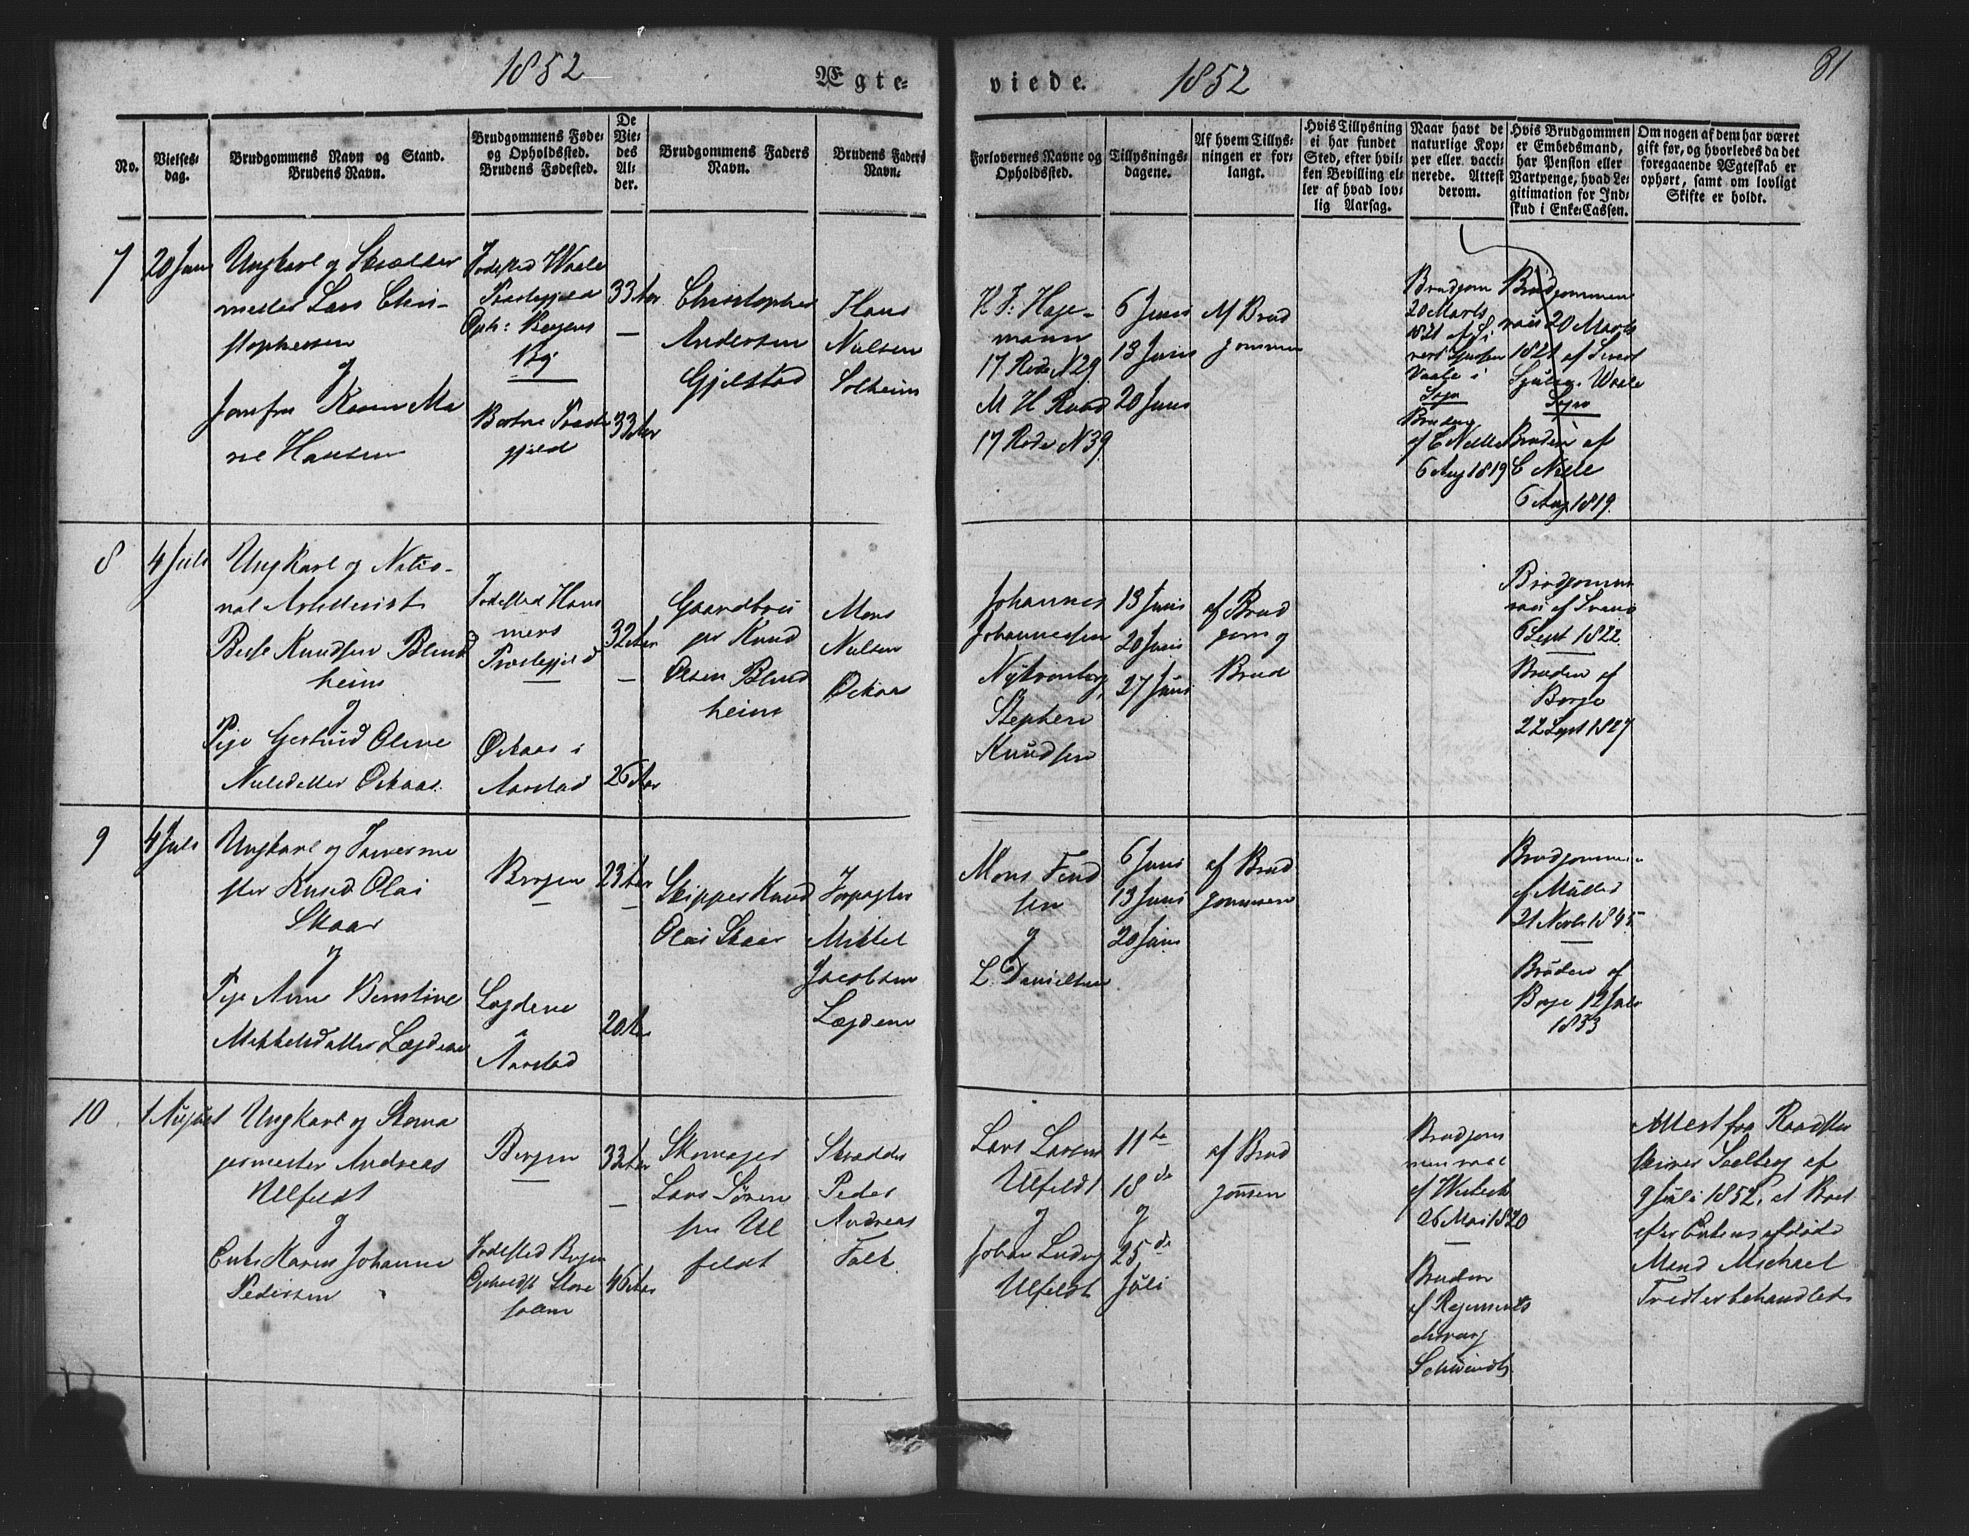 1852
Ægte-
viede.
1852
81
No.
Vielses-
dag.
Brudgommens Navn og Stand.
Brudens Navn.
Brudgommens Føde-
og Opholdssted.
Brudens Fødested.
De
Vie-
des
Al-
der.
Brudgommens Faders
Navn.
Brudens Faders
Navn.
Forlovernes Navne og
Opholdssted.
Tillysnings-
dagene.
Af hvem Tillys-
ningen er for-
langt.
Hvis Tillysning
ei har fundet
Sted, efter hvil-
ken Bevilling el-
ler af hvad lov-
lig Aarsag.
Naar havt de
naturlige Kop-
per eller vacci-
nerede. Attest
derom.
Hvis Brudgommen
er Embedsmand,
har Pension eller
Vartpenge, hvad Le-
gitimation for Ind-
skud i Enke-Cassen.
Om nogen af dem har været
gift før, og hvorledes da det
foregaaende Ægteskab er
ophørt, samt om lovligt
Skifte er holdt.
7
20 Juni
Ungkarl og
Lars Chri-
stophersen
og
Jomfru Karen Ma
Hansen
Fødested Waale
Præstegjeld
Oph: Bergens
33 Aar
33 Aar
Christopher
Andersen
Gjelstad
Hans
Nielsen
Solheim
H. F. Hage-
mann
17 Rode N 29
M H Ruud
17 Rode N 39
6 Juni
13 Juni
20 Juni
Af Brud
gommen
Brudgom
20 Marts
1821 af Si
Vaale i
Bruden
af C Nelle
6 Aug 1819
Brudgommen
vac 20 Marts
1821 af Sivert
Waale
Bruden af
C Nelle
6 Aug 1819.
8
4 Juli
Ungkarl og Natio-
nal Artillerist
Knudsen Blind
heim
og
Pige Gertrud Olive
Nielsdatter Øvkaas.
Fødested Ham
mers
Præstegjeld
Øvkaas i
Aarstad
32 Aar
26 Aar
Gaardbrú
ger Knud
Olsen Blind
heim
Mons
Nielsen
Øvkaas
Johannes
Johannessen
Nykronborg,
Stephen
Knudsen
13 Juni
20 Juni
27 Juni
af Brud
gom og
Brud
Brudgommen
6 Sept 1822
Bruden af
Borge
22 Sept 1827
9
4 Juli
Ungkarl og Farverme
ster Knud Olai
Skaar
og
Pige Anne Berntine
Mikkelsdatter Lægdene
Bergen
Lægdene
Aarstad
23 Aar
20 Aar
Skipper Knud
Olai Skaar
Forpagter
Mikkel
Jacobsen
Lægdene
Mons Find
sen
og
L. Danielsen
6 Juni
13 Juni
20 Juni
af Brud
gommen
Brudgommen
af Müller
21 Novbr 1845
Bruden af
Borge 12 Juli
1833
10
1 August
Ungkarl og Skoma
germester Andreas
Ulfeldt
og
Enke Karen Johanne
Pedersen
Bergen
Fødested Bergen
Opholdst Store
33 Aar
46 Aar
Skomager
Lars Søren
sen Ul
feldt
Skrædder
Peder
Andreas
Falk
Lars Larsen
Ulfeldt
og
Johan Ludvig
Ulfeldt
11te
18de
og
25de
Juli
af Brud
gommen
Brudgom
men vac
af Wisbech
26 Mai 1820
Bruden
af Regiments
chirurg
Schwindt
Attest fra Raadstu
skriver Salberg af
9 Juli 1852, at Boet
efter Enkens afdøde
Mand Michael
behandlet